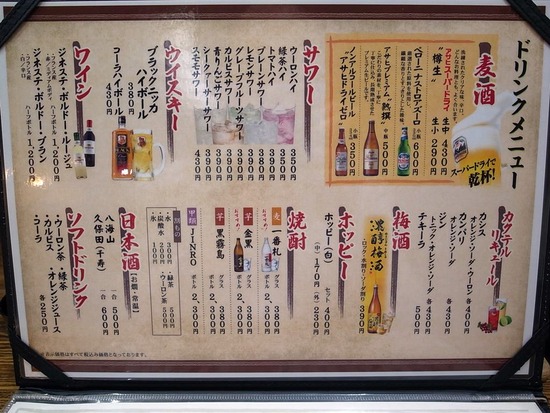 ドリンクメニュー
麦酒
アサヒスーパードライ
"樽生"
生中 430円
生小 290円
スーパードライで乾杯!
ペローニ・ナストロアズーロ
小瓶 600円
アサヒプレミアム"熟撰"
中瓶 500円
ノンアルコールビール
"アサヒドライゼロ"
小瓶 350円
サワー
ウーロンハイ 350円
緑茶ハイ 350円
トマトハイ
プレーンサワー
レモンサワー
グレープフルーツサワー
カルピスサワー
青りんごサワー
シークァーサーサワー
スモモサワー 430円
ウイスキー
ブラックニッカ
ハイボール
380円
コーラハイボール
430円
ワイン
ジネステ・ボルドー・ルージュ
ハーフボトル 1,200円
ジネステ・ボルドー・ブラン
ハーフボトル 1,200円
カクテル
リキュール
カシス
オレンジ・ソーダ・ウーロン 各400円
カンパリ
オレンジ・ソーダ 各400円
ジン
トニック・オレンジ・ソーダ 各430円
テキーラ
オレンジ・ソーダ 各430円
梅酒
濃醇梅酒
・ロック・水割り・ソーダ割り
390円
ホッピー
セット 400円
ホッピー(白) 170円
(外) 230円
焼酎
麦 一番札
グラス 380円
ボトル 2,300円
芋 金黒
グラス 380円
ボトル 2,300円
芋 黒霧島
グラス
ボトル 2,300円
甲類 JINRO
ボトル 2,300円
割もの
・氷 300円
・炭酸水
・水 100円
・緑茶 500円
・ウーロン茶 500円
日本酒
【お燗・常温】
八海山 一合 500円
久保田(千寿) 一合 600円
ソフトドリンク
・ウーロン茶・緑茶
・カルピス・オレンジジュース
・コーラ 各250円
※表示価格はすべて税込み価格となっております。